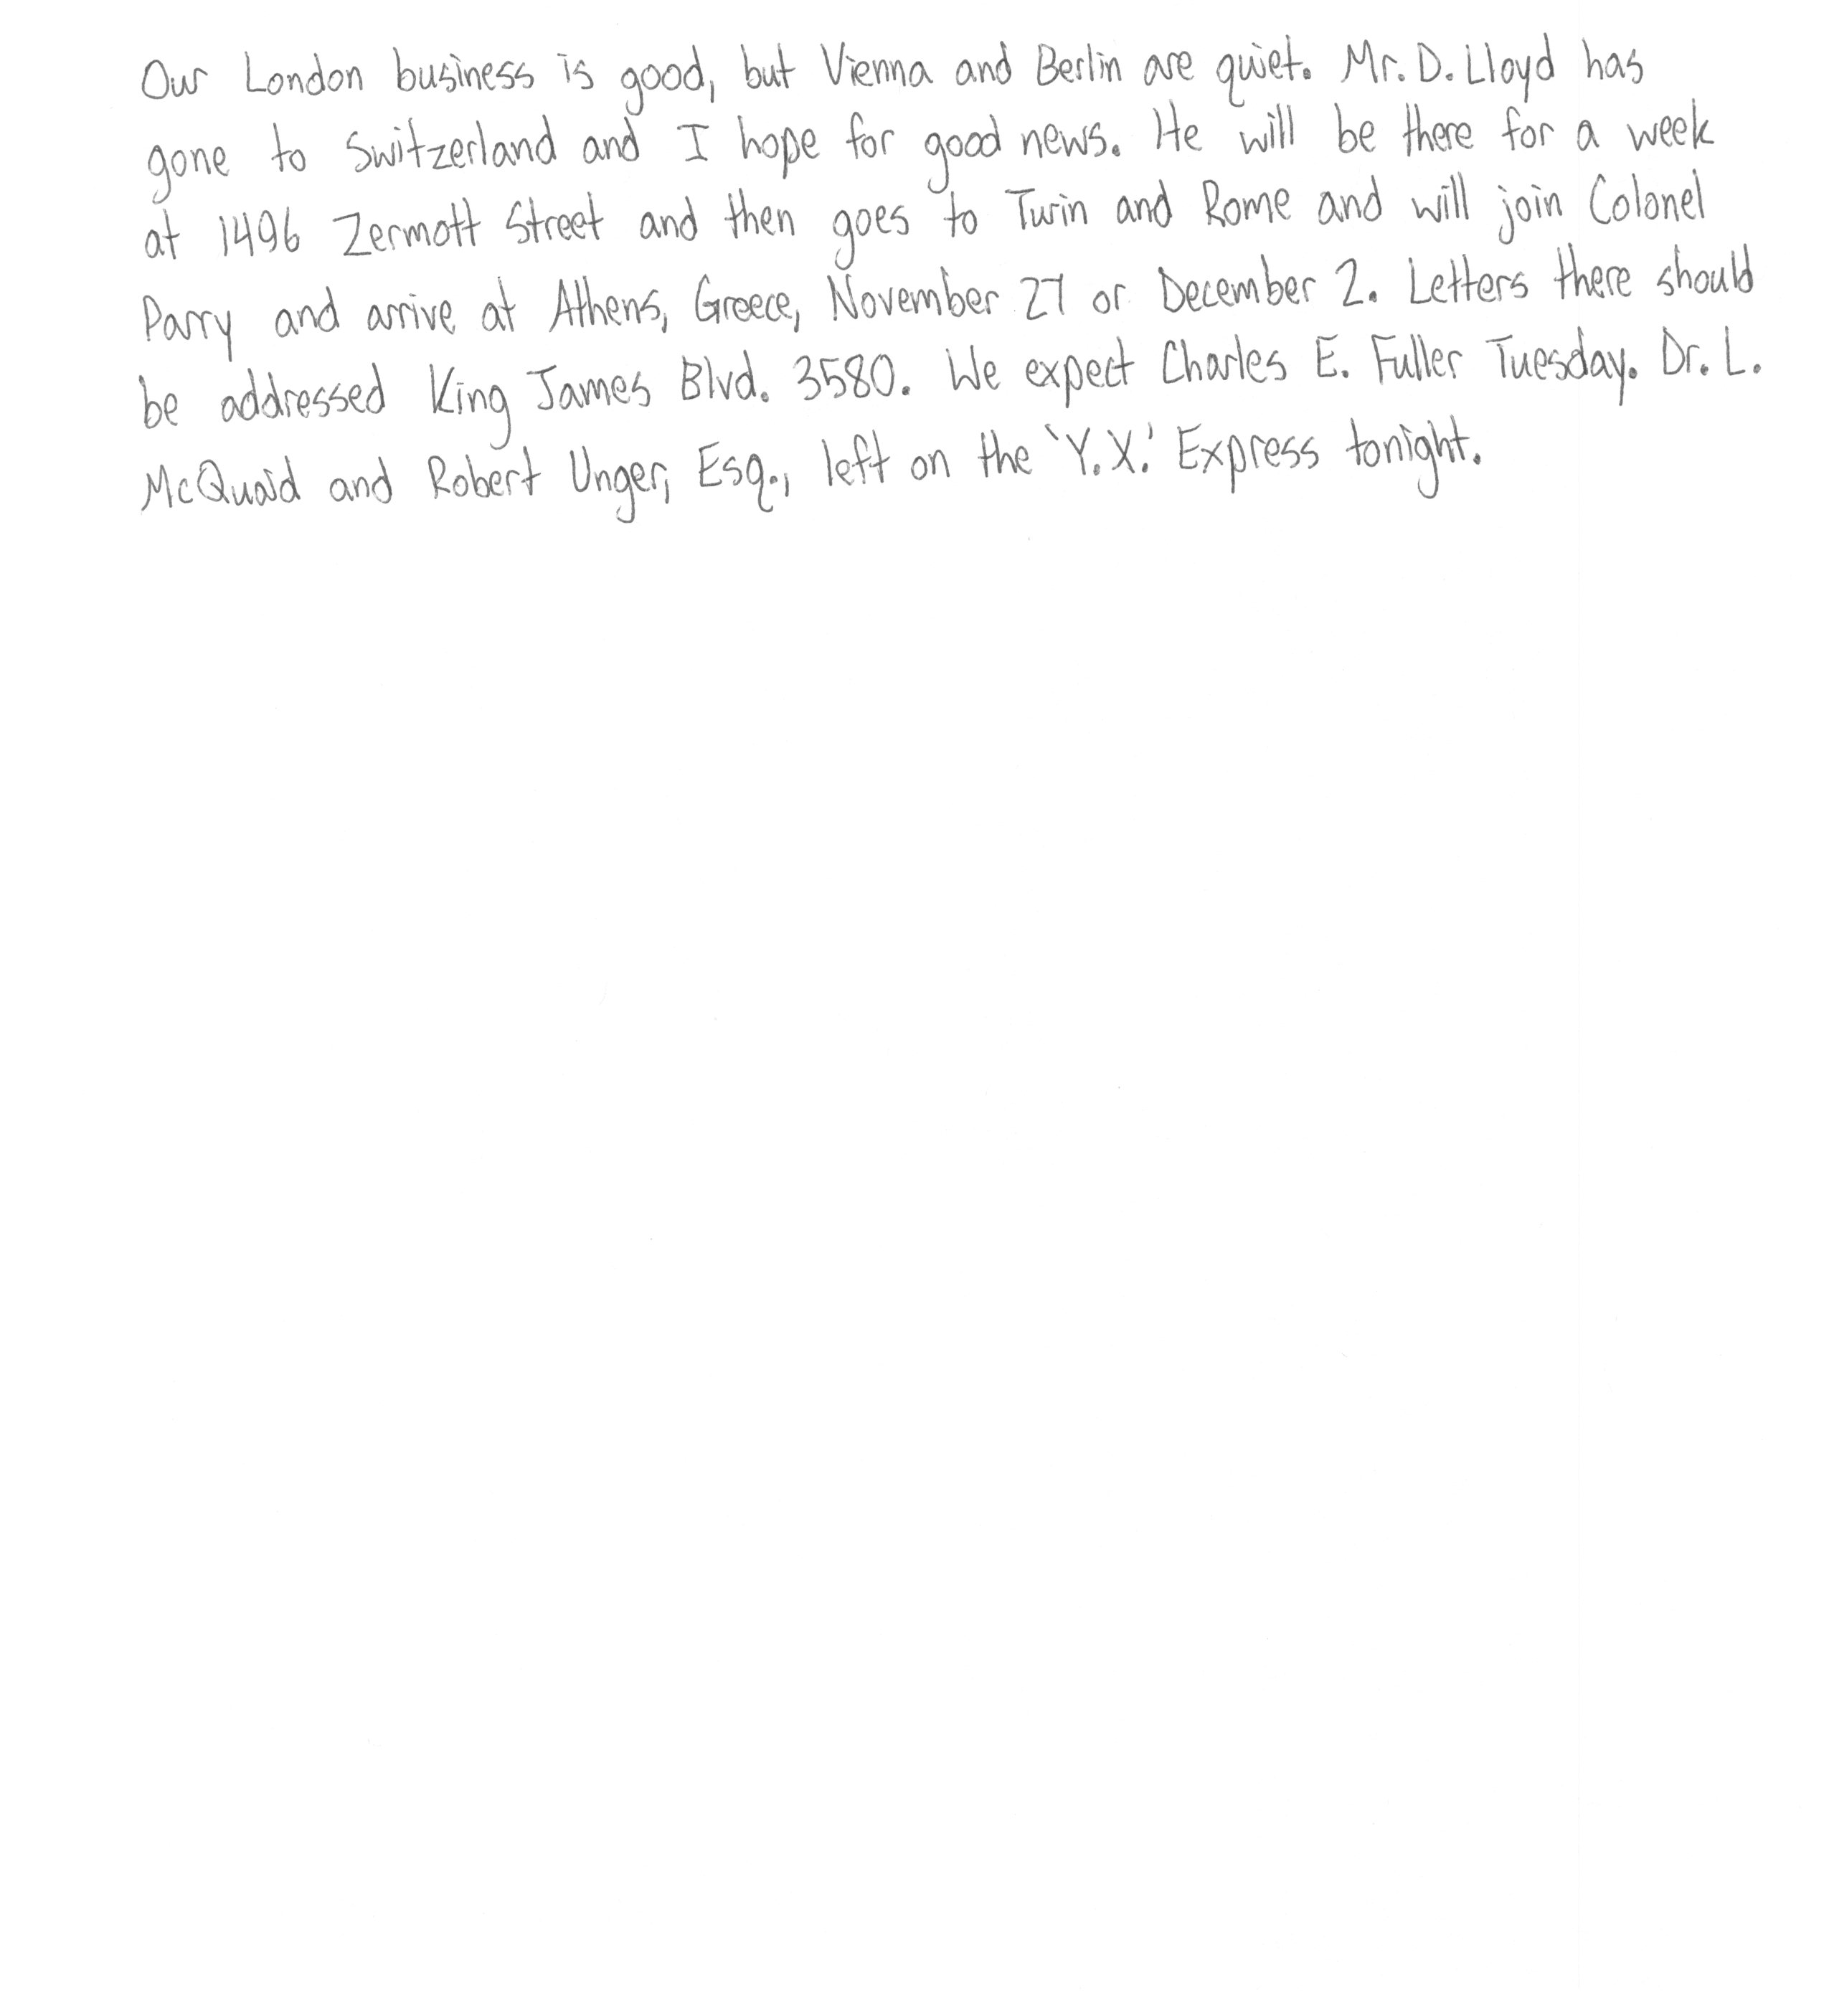 Our London business is good, but Vienna and Berlin are quiet. Mr. D. Lloyd has
gone to Switzerland and I hope for good news. He will be there for a week
at 1496 Zermott Street and then goes to Turin and Rome and will join Colonel
Parry and arrive at Athens, Greece, November 27 or December 2. Letters there should
be addressed King James Blvd. 3580. We expect Charles E. Fuller Tuesday. Dr. L.
McQuaid and Robert Unger, Esq., left on the 'Y.X.' Express tonight.